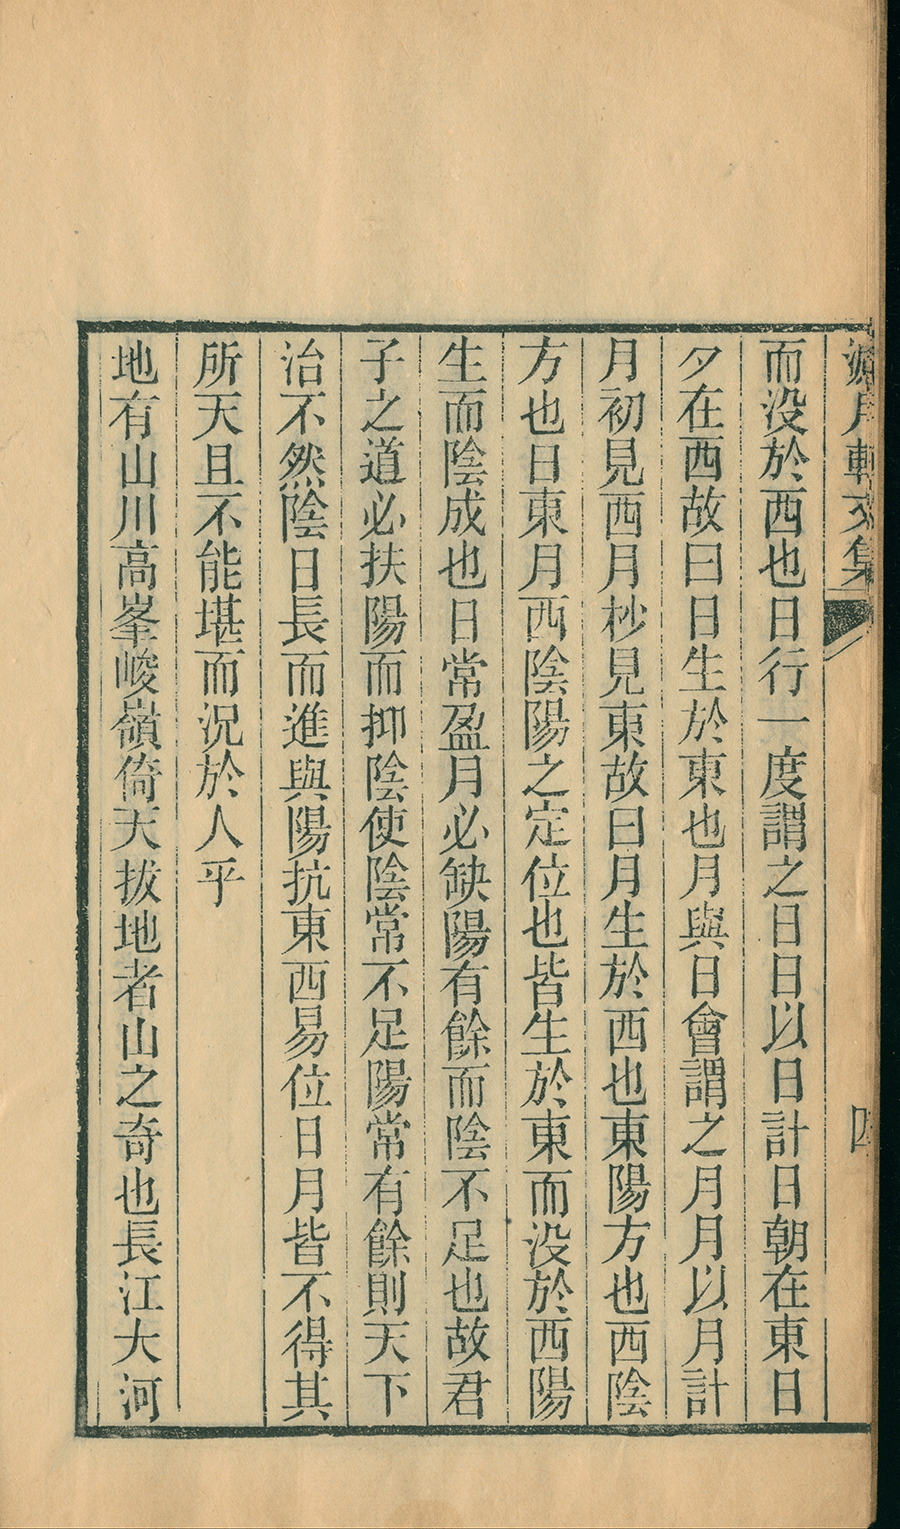 月軒文集
四
而没於西也日行一度謂之日日以日計日朝在東日
夕在西故曰日生於東也月與日會謂之月月以月計
月初見西月杪見東故曰月生於西也東陽方也西陰
方也日東月西陰陽之定位也皆生於東而没於西陽
生而陰成也日常盈月必缺陽有餘而陰不足也故君
子之道必扶陽而抑陰使陰常不足陽常有餘則天下
治不然陰日長而進與陽抗東西易位日月皆不得其
所天且不能堪而況於人乎
地有山川高峯峻嶺倚天拔地者山之奇也長江大河